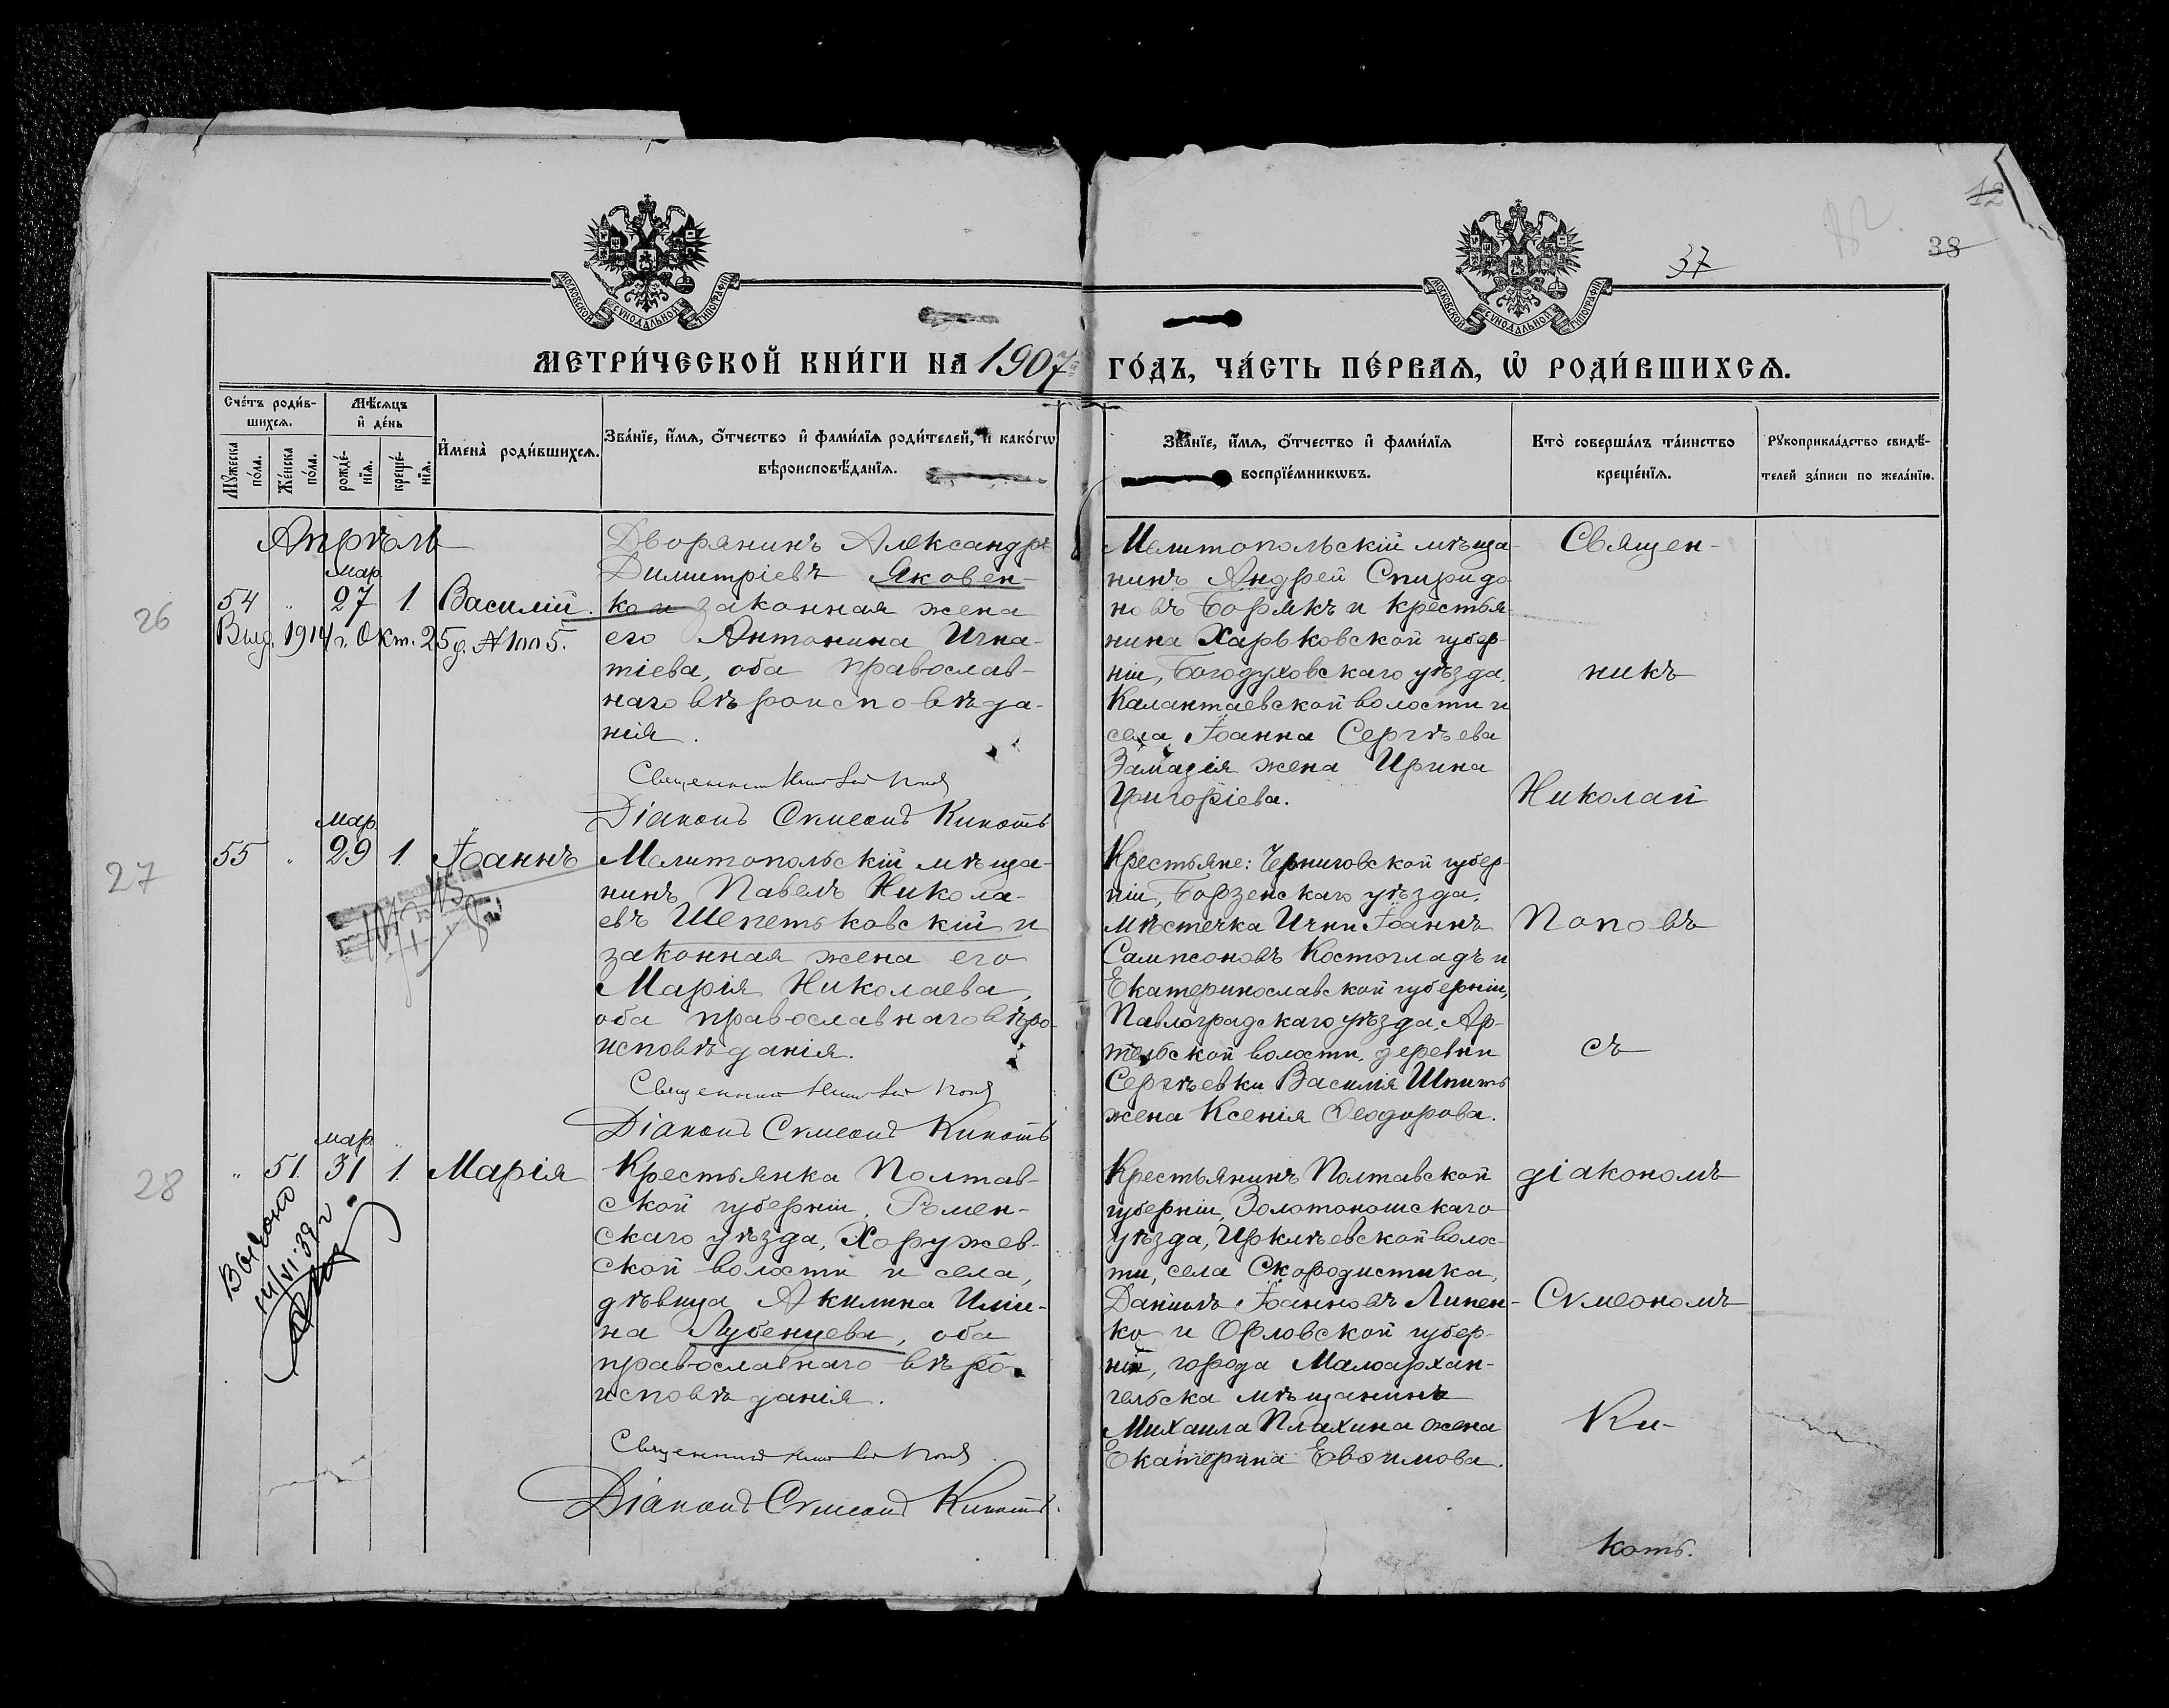 12
38
37
МОСКОВСКОЙ СѴНОДАЛЬНОЙ ТИПОГРАФІИ
МОСКОВСКОЙ СѴНОДАЛЬНОЙ ТИПОГРАФІИ
МЕТРИ́ЧЕСКОЙ КНИ́ГИ НА 1907 ГО́ДЪ, ЧА́СТЬ ПЕ́РВАѦ, Ѡ҆ РОДИ́ВШИХСѦ.
Сче́тъ роди́в-
шихсѧ.
Мꙋ́жеска по́ла.
Же́нска по́ла.
Мѣ́сѧцъ
и҆ де́нь
рожде́-
нїѧ.
креще́-
нїѧ.
И҆мена̀ роди́вшихсѧ.
Зва́нїе, и҆́мѧ, ѻ҆́тчество и҆ фами́лїѧ роди́телей, и҆ како́гѡ
вѣроисповѣ́данїѧ.
Зва́нїе, и҆́мѧ, ѻ҆́тчество и҆ фами́лїѧ
воспрїе́мникѡвъ.
Кто̀ соверша́лъ та́инство
креще́нїѧ.
Рꙋкоприкла́дство свидѣ́-
телей за́писи по жела́нїю.
Апрѣль
26
54 " мар. 27 1. Василій.
Выд. 1914 г. Окт. 25 д. №
Дворянинъ Александръ
Димитріевъ Яковен-
ко и законная жена
его Антонина Игна-
тіева, оба православ-
наго вѣроисповѣда-
нія.
Священникъ Попов
Діаконъ Сѵмеонъ Кикоть
Мелитопольскій мѣща-
нинъ Андрей Спиридо-
новъ Борякъ и крестья-
нина Харьковской губер-
ніи, Богодуховскаго уѣзда,
Калантаевской волости и
села Іоанна Сергѣева
Замазія жена Ирина
Григоріева.
27
55 " мар. 29 1. Іоаннъ
Мелитопольскій мѣща-
нинъ Павелъ Никола-
евъ Шепетьковскій и
законная жена его
Марія Николаева,
оба православнаго вѣро-
исповѣданія.
Священникъ Попов
Діаконъ Сѵмеонъ Кикоть
Крестьяне: Черниговской губер-
ніи, Борзенскаго уѣзда,
мѣстечка Ични Іоаннъ
Сампсоновъ Костогладъ и
Екатеринославской губерніи,
Павлоградскаго уѣзда, Ар-
тельской волости, деревни
Сергѣевки Василія Шпить
жена Ксенія Ѳеодорова.
28
" 51. мар. 31 1. Марія
Выдано
14/VI.39 г.
Крестьянка Полтав-
ской губерніи, Ромен-
скаго уѣзда, Хоружев-
ской волости и села,
дѣвица Акилина Иліи-
на Лубенцева, оба
православнаго вѣро-
исповѣданія.
Священникъ Попов
Діаконъ Сѵмеонъ Кикоть.
Крестьянинъ Полтавской
губерніи, Золотоношскаго
уѣзда, Ирклѣевской волос-
ти, села Скородистика,
Даніилъ Іоанновъ Липен-
ко и Орловской губер-
ніи, города Малоархан-
гельска мѣщанина
Михаила Плахина жена
Екатерина Евѳимова.
Священ-
никъ
Николай
Поповъ
съ
діакономъ
Сѵмеономъ
Ки-
коть.